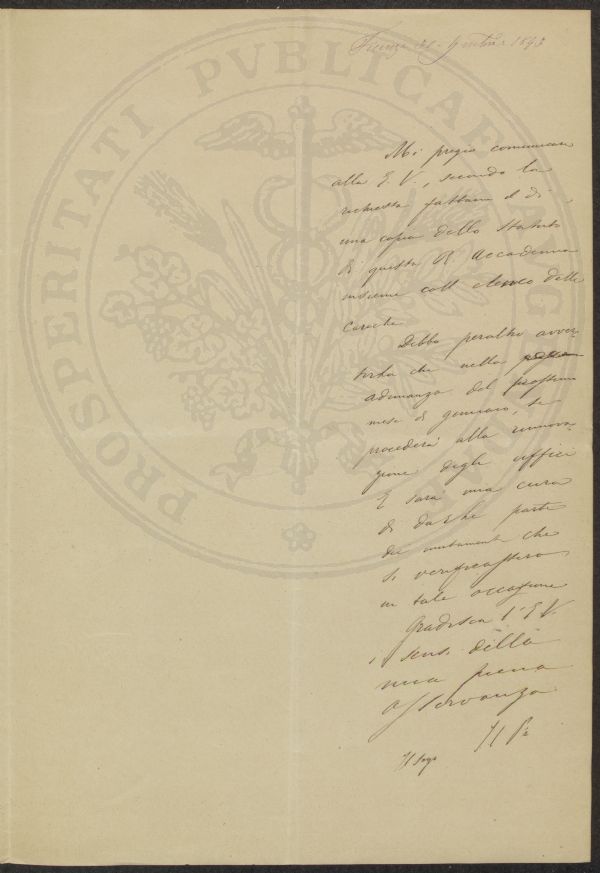 PROSPERITATI PUBLICAE AUGENDAE
Firenze 1893
Mi pregio comunicare
alla E. V., secondo la
richiesta fattami
una copia dello Statuto
di questa R. Accademia
insieme coll elenco delle
cariche
Debbo peraltro avver-
tirla che nella
adunanza del prossimo
mese di gennaio, si
procederà alla rinnova-
zione degli uffici
E sarà mia cura
di darLe parte
dei mutamenti che
si verificassero
in tale occasione
Gradisca l'E V.
i sensi della
mia piena
osservanza
Il P
Il Seg